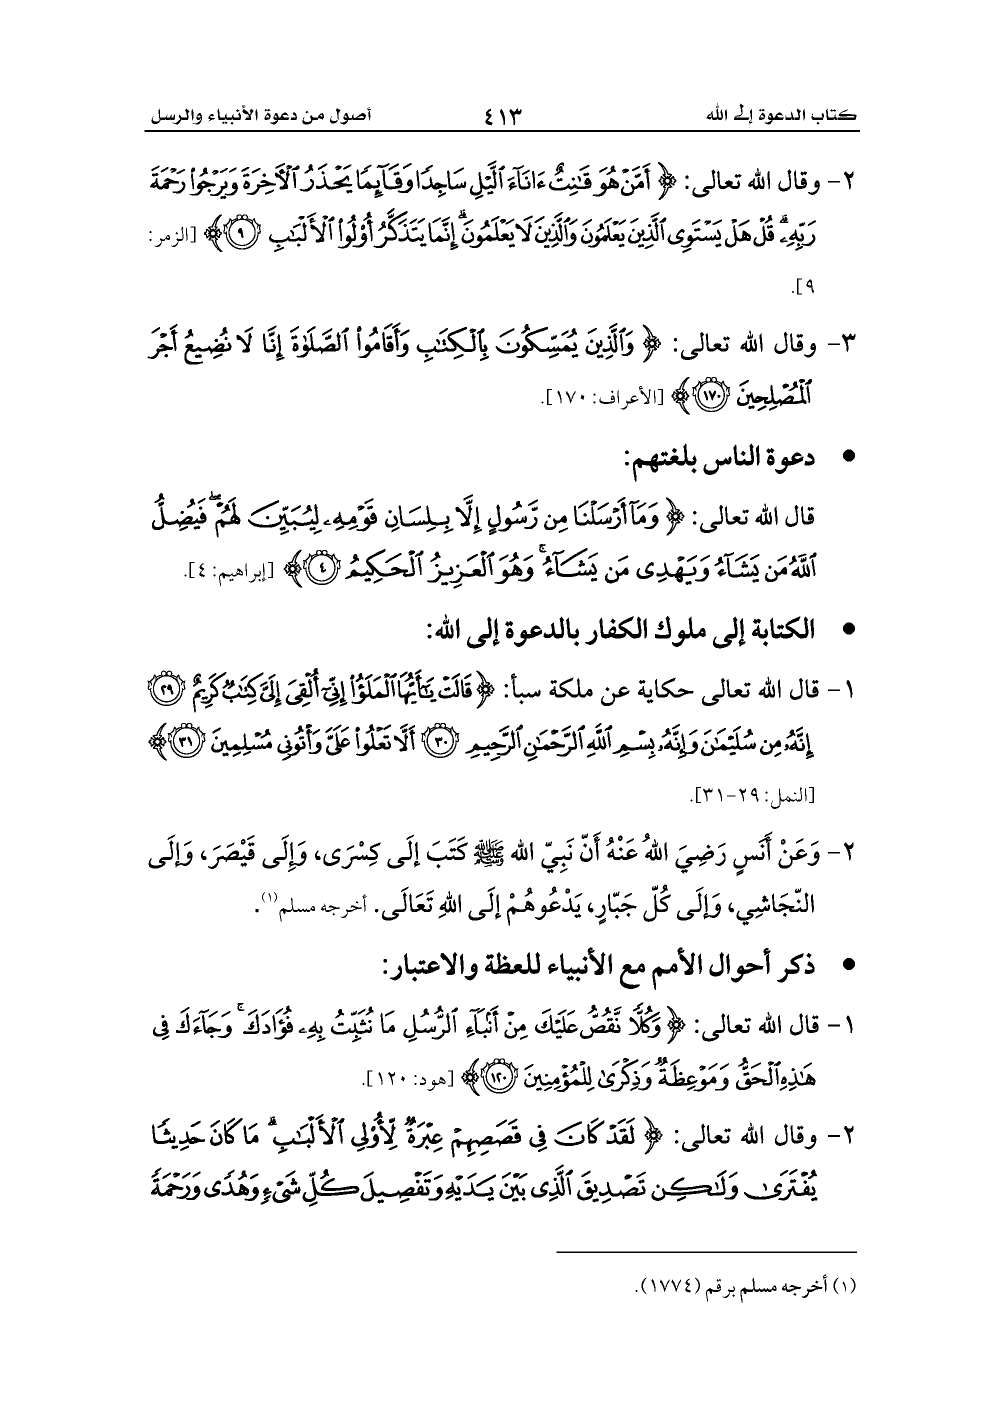 كتاب الدعوة إلى الله ٤١٣ أصول من دعوة الأنبياء والرسل
٢- وقال الله تعالى: ﴿ أَمَّنْ هُوَ قَـٰنِتٌ ءَانَآءَ ٱلَّيْلِ سَاجِدًا وَقَآئِمًا يَحْذَرُ ٱلْـَٔاخِرَةَ وَيَرْجُوا۟ رَحْمَةَ
رَبِّهِۦ ۗ قُلْ هَلْ يَسْتَوِى ٱلَّذِينَ يَعْلَمُونَ وَٱلَّذِينَ لَا يَعْلَمُونَ ۗ إِنَّمَا يَتَذَكَّرُ أُو۟لُوا۟ ٱلْأَلْبَـٰبِ ۝٩ ﴾ [الزمر:
٩].
٣- وقال الله تعالى: ﴿ وَٱلَّذِينَ يُمَسِّكُونَ بِٱلْكِتَـٰبِ وَأَقَامُوا۟ ٱلصَّلَوٰةَ إِنَّا لَا نُضِيعُ أَجْرَ
ٱلْمُصْلِحِينَ ۝١٧٠ ﴾ [الأعراف: ١٧٠].
• دعوة الناس بلغتهم:
قال الله تعالى: ﴿ وَمَآ أَرْسَلْنَا مِن رَّسُولٍ إِلَّا بِلِسَانِ قَوْمِهِۦ لِيُبَيِّنَ لَهُمْ ۖ فَيُضِلُّ
ٱللَّهُ مَن يَشَآءُ وَيَهْدِى مَن يَشَآءُ ۚ وَهُوَ ٱلْعَزِيزُ ٱلْحَكِيمُ ۝٤ ﴾ [إبراهيم: ٤].
• الكتابة إلى ملوك الكفار بالدعوة إلى الله:
١- قال الله تعالى حكاية عن ملكة سبأ: ﴿ قَالَتْ يَـٰٓأَيُّهَا ٱلْمَلَؤُا۟ إِنِّىٓ أُلْقِىَ إِلَىَّ كِتَـٰبٌ كَرِيمٌ ۝٢٩
إِنَّهُۥ مِن سُلَيْمَـٰنَ وَإِنَّهُۥ بِسْمِ ٱللَّهِ ٱلرَّحْمَـٰنِ ٱلرَّحِيمِ ۝٣٠ أَلَّا تَعْلُوا۟ عَلَىَّ وَأْتُونِى مُسْلِمِينَ ۝٣١ ﴾
[النمل: ٢٩-٣١].
٢- وَعَنْ أَنَسٍ رَضِيَ اللهُ عَنْهُ أَنّ نَبِيّ الله ﷺ كَتَبَ إلَى كِسْرَى، وَإِلَى قَيْصَرَ، وَإِلَى
النّجَاشِي، وَإِلَى كُلّ جَبّارٍ، يَدْعُوهُمْ إلَى اللهِ تَعَالَى. أخرجه مسلم(١).
• ذكر أحوال الأمم مع الأنبياء للعظة والاعتبار:
١- قال الله تعالى: ﴿ وَكُلًّا نَّقُصُّ عَلَيْكَ مِنْ أَنۢبَآءِ ٱلرُّسُلِ مَا نُثَبِّتُ بِهِۦ فُؤَادَكَ ۚ وَجَآءَكَ فِى
هَـٰذِهِ ٱلْحَقُّ وَمَوْعِظَةٌ وَذِكْرَىٰ لِلْمُؤْمِنِينَ ۝١٢٠ ﴾ [هود: ١٢٠].
٢- وقال الله تعالى: ﴿ لَقَدْ كَانَ فِى قَصَصِهِمْ عِبْرَةٌ لِّأُو۟لِى ٱلْأَلْبَـٰبِ ۗ مَا كَانَ حَدِيثًا
يُفْتَرَىٰ وَلَـٰكِن تَصْدِيقَ ٱلَّذِى بَيْنَ يَدَيْهِ وَتَفْصِيلَ كُلِّ شَىْءٍ وَهُدًى وَرَحْمَةً
(١) أخرجه مسلم برقم (١٧٧٤).